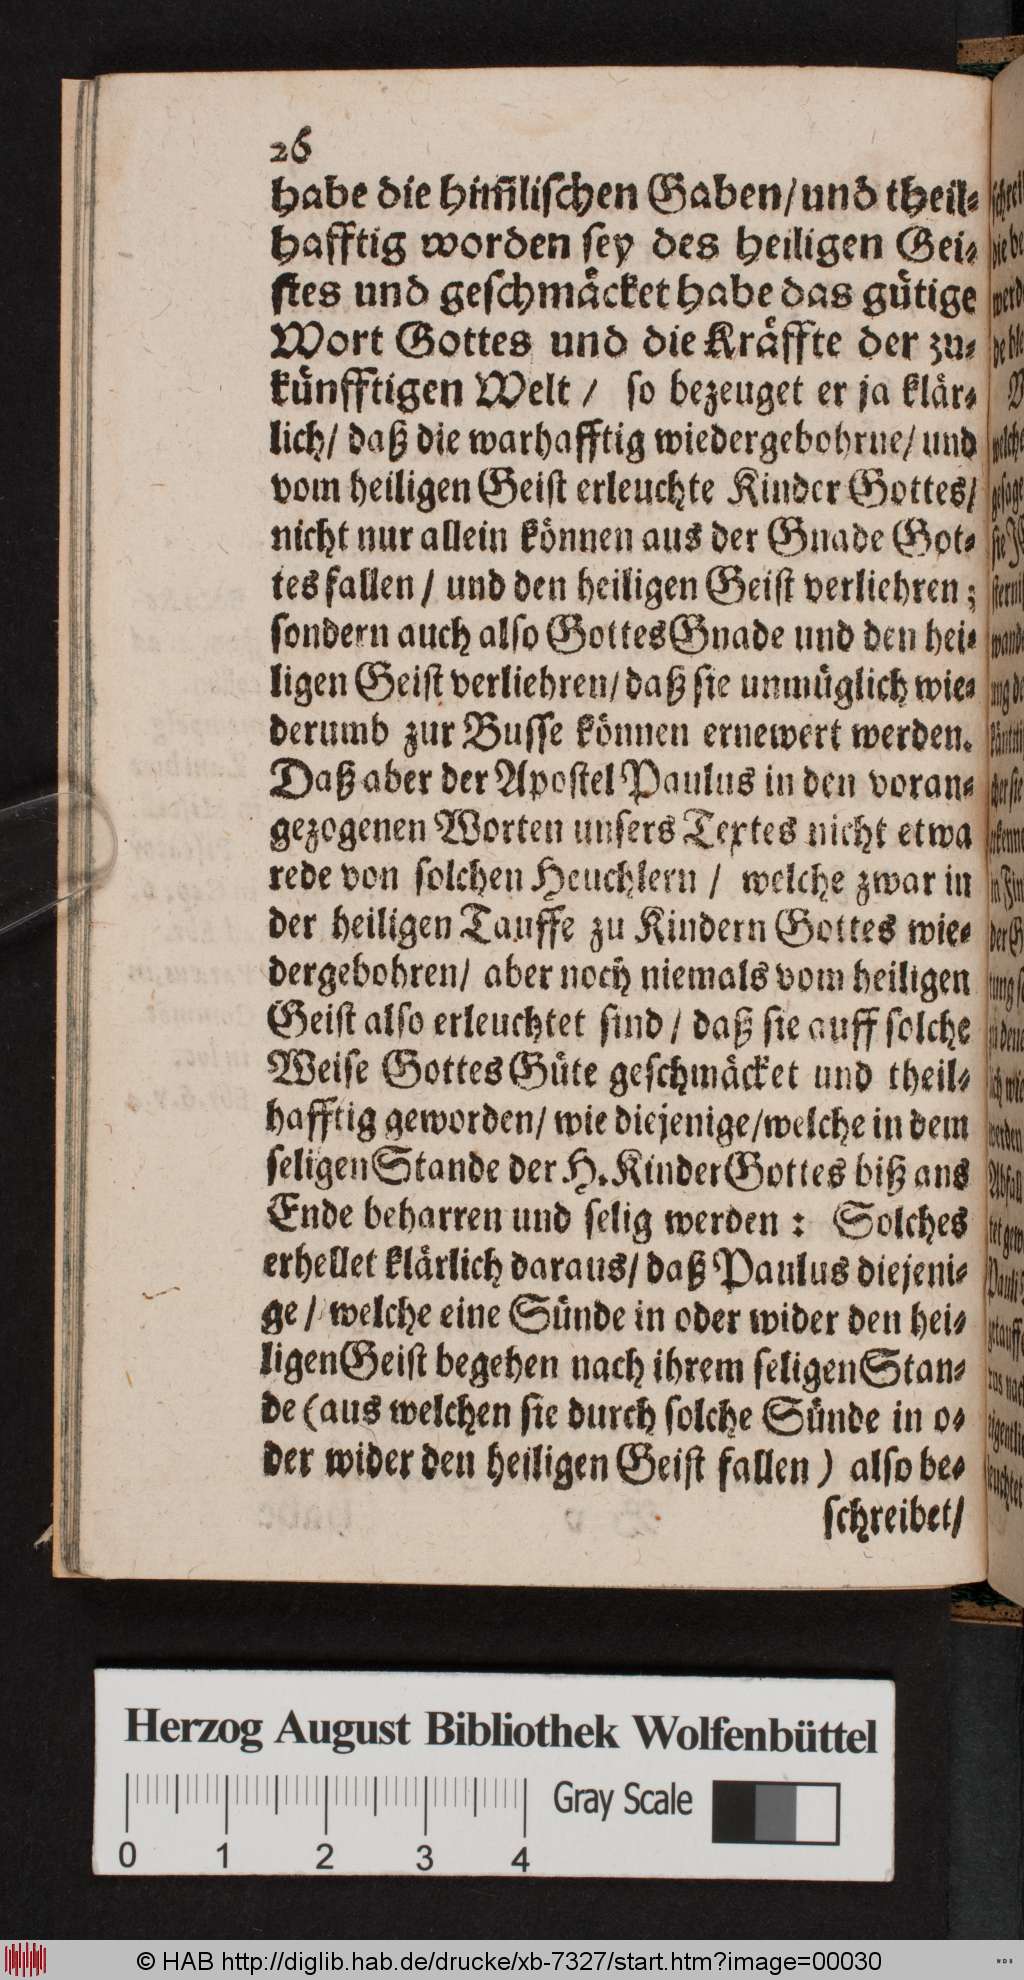 26
habe die him̃lischen Gaben/und theil⸗
hafftig worden sey des heiligen Gei⸗
stes und geschmäcket habe das gütige
Wort Gottes und die Kräffte der zu⸗
künfftigen Welt / so bezeuget er ja klär⸗
lich/ daß die warhafftig wiedergebohrne/ und
vom heiligen Geist erleuchte Kinder Gottes/
nicht nur allein können aus der Gnade Got⸗
tes fallen / und den heiligen Geist verliehren ;
sondern auch also Gottes Gnade und den hei⸗
ligen Geist verliehren/ daß sie unmüglich wie⸗
derumb zur Busse können ernewert werden.
Daß aber der Apostel Paulus in den voran⸗
gezogenen Worten unsers Textes nicht etwa
rede von solchen Heuchlern / welche zwar in
der heiligen Tauffe zu Kindern Gottes wie⸗
dergebohren/ aber noch niemals vom heiligen
Geist also erleuchtet sind / daß sie auff solche
Weise Gottes Güte geschmäcket und theil⸗
hafftig geworden/ wie diejenige/welche in dem
seligen Stande der H. Kinder Gottes biß ans
Ende beharren und selig werden : Solches
erhellet klärlich daraus/ daß Paulus diejeni⸗
ge / welche eine Sünde in oder wider den hei⸗
ligen Geist begehen nach ihrem seligen Stan⸗
de (aus welchen sie durch solche Sünde in o⸗
der wider den heiligen Geist fallen ) also be⸗
schreibet/
Herzog August Bibliothek Wolfenbüttel
Gray Scale
0 1 2 3 4
© HAB http://diglib.hab.de/drucke/xb-7327/start.htm?image=00030